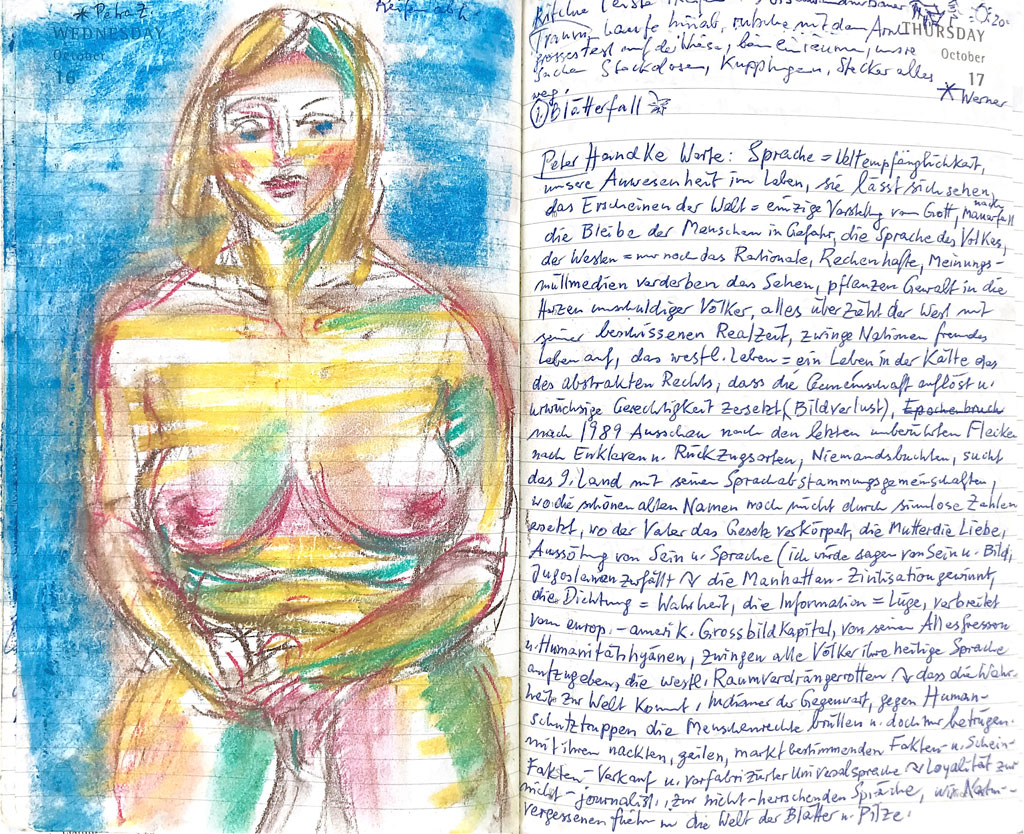 * Petra Z.
WEDNESDAY
October
16
Reifen abh
20°
THURSDAY
October
17
* Werner
Traum, Laufe hinab, rutsche mit dem Arm
grosses Fest auf der Wiese, unsre
Sachen Steckdosen, Kupplungen, Stecker alles
weg!
1. Blätterfall
Peter Handke Worte: Sprache = Weltempfänglichkeit,
unsere Anwesenheit im Leben, sie lässt sich sehen,
das Erscheinen der Welt = einzige Vorstellung von Gott, nach Mauerfall
die Bleibe der Menschen in Gefahr, die Sprache des Volkes,
der Westen = nur noch das Rationale, Rechenhafte, Meinungs-
müllmedien verderben das Sehen, pflanzen Gewalt in die
Herzen unschuldiger Völker, alles überzieht der West mit
seiner beschissenen Realzeit, zwinge Nationen fremdes
Leben auf, das westl. Leben = ein Leben in der Kälte des
des abstrakten Rechts, dass die Gemeinschaft auflöst u.
urwüchsige Gerechtigkeit zersetzt (Bildverlust), Epochenbruch
nach 1989 Ausschau nach den letzten unberührten Flecken
nach Enklaven u. Rückzugsorten, Niemandsbuchten, sucht
das 9. Land mit seinen Sprachabstammungsgemeinschaften,
wo die schönen alten Namen noch nicht durch sinnlose Zahlen
ersetzt, wo der Vater das Gesetz verkörpert, die Mutter die Liebe,
Aussöhng von Sein u. Sprache (ich würde sagen von Sein u. Bild,
Jugoslawien zerfällt die Manhattan-Zivilisation gewinnt,
die Dichtung = Wahrheit, die Information = Lüge, verbreitet
vom europ.-amerik. Grossbildkapital, von seinen Allesfressern
u. Humanitätshyänen, zwingen alle Völker ihre heilige Sprache
aufzugeben, die westl. Raumverdrängerrotten dass die Wahr-
heit zur Welt kommt, Indianer der Gegenwart, gegen Human-
schutztruppen die Menschenrechte brüllen u. doch nur betrügen.
mit ihren nackten, geilen, marktbestimmenden Fakten- u. Schein-
Fakten-Verkauf u. vorfabrizierter Universalsprache Loyalität zur
nicht-journalist., zur nicht-herrschenden Sprache, Natur-
vergessenen in die Welt der Blätter u. Pilze.